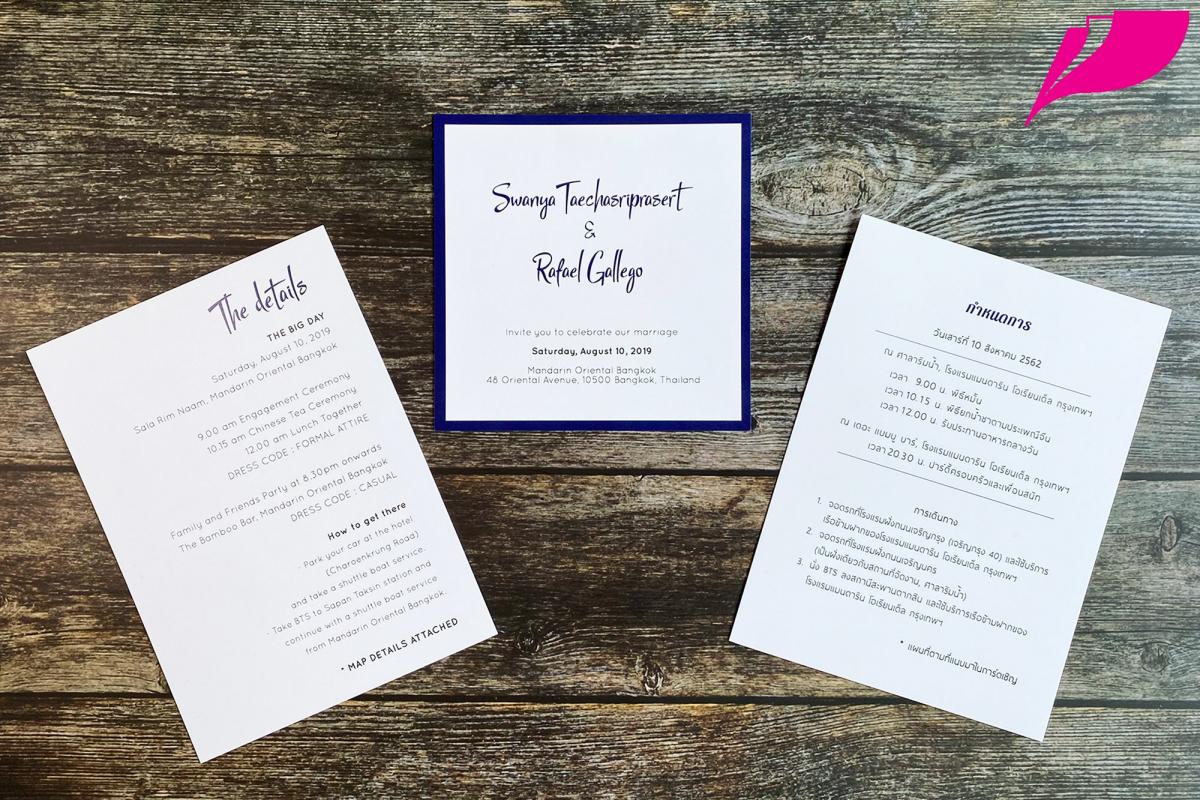 The details
THE BIG DAY
Saturday, August 10, 2019
Sala Rim Naam, Mandarin Oriental Bangkok
9.00 am Engagement Ceremony
10.15 am Chinese Tea Ceremony
12.00 am Lunch Together
DRESS CODE : FORMAL ATTIRE
Family and Friends Party at 8.30pm onwards
The Bamboo Bar, Mandarin Oriental Bangkok
DRESS CODE : CASUAL
How to get there
- Park your car at the hotel
(Charoenkrung Road)
and take a shuttle boat service.
- Take BTS to Sapan Taksin station and
continue with a shuttle boat service
from Mandarin Oriental Bangkok.
* MAP DETAILS ATTACHED
Swanya Taechasriprasert
&
Rafael Gallego
Invite you to celebrate our marriage
Saturday, August 10, 2019
Mandarin Oriental Bangkok
48 Oriental Avenue, 10500 Bangkok, Thailand
กำหนดการ
วันเสาร์ที่ 10 สิงหาคม 2562
ณ ศาลาริมน้ำ, โรงแรมแมนดาริน โอเรียนเต็ล กรุงเทพฯ
เวลา 9.00 น. พิธีหมั้น
เวลา 10.15 น. พิธียกน้ำชาตามประเพณีจีน
เวลา 12.00 น. รับประทานอาหารกลางวัน
ณ เดอะ แบมบู บาร์, โรงแรมแมนดาริน โอเรียนเต็ล กรุงเทพฯ
เวลา 20.30 น. ปาร์ตี้ครอบครัวและเพื่อนสนิท
การเดินทาง
1. จอดรถที่โรงแรมฝั่งถนนเจริญกรุง (เจริญกรุง 40) และใช้บริการ
เรือข้ามฝากของโรงแรมแมนดาริน โอเรียนเต็ล กรุงเทพฯ
2. จอดรถที่โรงแรมฝั่งถนนเจริญนคร
(เป็นฝั่งเดียวกับสถานที่จัดงาน, ศาลาริมน้ำ)
3. นั่ง BTS ลงสถานีสะพานตากสิน และใช้บริการเรือข้ามฝากของ
โรงแรมแมนดาริน โอเรียนเต็ล กรุงเทพฯ
* แผนที่ตามที่แนบมาในการ์ดเชิญ